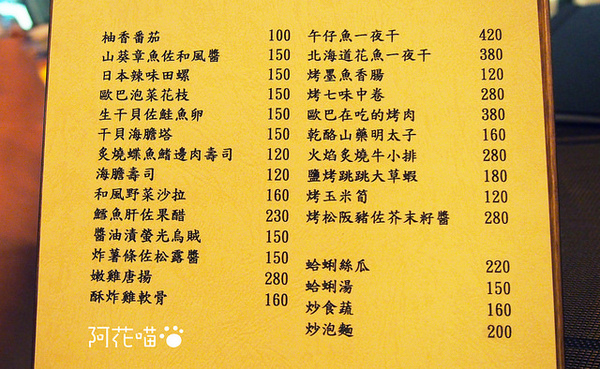 柚香番茄 100
山葵章魚佐和風醬 150
日本辣味田螺 150
歐巴泡菜花枝 150
生干貝佐鮭魚卵 150
干貝海膽塔 150
炙燒蝶魚鰭邊肉壽司 120
海膽壽司 120
和風野菜沙拉 160
鱈魚肝佐果醋 230
醬油漬螢光烏賊 150
炸薯條佐松露醬 150
嫩雞唐揚 280
酥炸雞軟骨 160
午仔魚一夜干 420
北海道花魚一夜干 380
烤墨魚香腸 120
烤七味中卷 280
歐巴在吃的烤肉 380
乾酪山藥明太子 160
火焰炙燒牛小排 280
鹽烤跳跳大草蝦 180
烤玉米筍 120
烤松阪豬佐芥末籽醬 280
蛤蜊絲瓜 220
蛤蜊湯 150
炒食蔬 160
炒泡麵 200
阿花喵